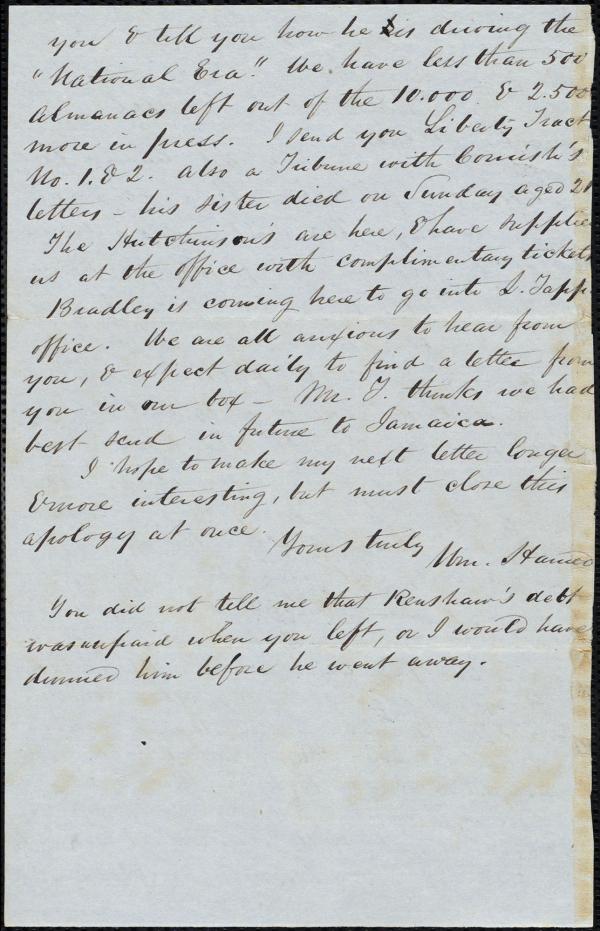 you & tell you how he is driving the
"National Era." We have less than 500
Almanacs left out of the 10.000 & 2.500
more in press. I send you Liberty Tract
No. 1. & 2. also a Tribune with Cornish's
letters - his sister died on Sunday aged 21
The Hutchinson's are here, & have supplied
us at the office with complimentary tickets
Bradley is coming here to go into L. Tapp
office. We are all anxious to hear from
you, & expect daily to find a letter from
you in our box - Mr. T. thinks we had
best send in future to Jamaica.
I hope to make my next letter longer
& more interesting, but must close this
apology at once.
Yours truly
Wm. Harned
You did not tell me that Renshaw's debt
was unpaid when you left, or I would have
dunned him before he went away.